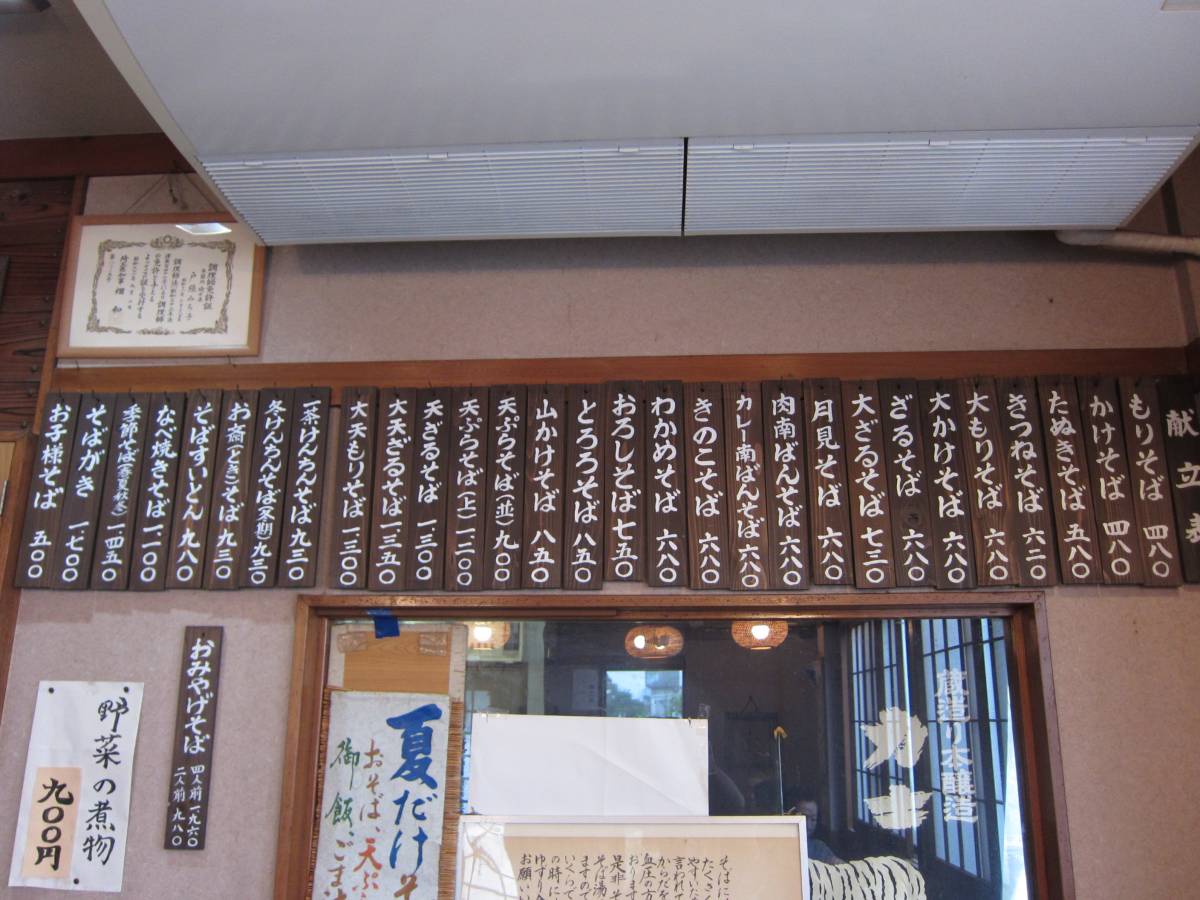 献立表
もりそば 四八〇
かけそば 四八〇
たぬきそば 五八〇
きつねそば 六二〇
大もりそば 六八〇
大かけそば 六八〇
ざるそば 六八〇
大ざるそば 七三〇
月見そば 六八〇
肉南ばんそば 六八〇
カレー南ばんそば 六八〇
きのこそば 六八〇
わかめそば 六八〇
おろしそば 七五〇
とろろそば 八五〇
山かけそば 八五〇
天ぷらそば(並) 九〇〇
天ぷらそば(上) 一、二〇〇
天ざるそば 一、三〇〇
大天ざるそば 一、三五〇
大天もりそば 一、三〇〇
茶けんちんそば 九三〇
冬けんちんそば(冬期) 九三〇
お斎(とき)そば 九三〇
そばすいとん 九八〇
なべ焼きそば 一、一〇〇
季節そば(春夏秋冬) 一、四五〇
そばがき 一、七〇〇
お子様そば 五〇〇
調理師免許証
おみやげそば 四人前 一、九六〇
二人前 九八〇
野菜の煮物
九〇〇円
夏だけそ
おそば、天ぷ
御飯、ごま
蔵造り本醸造
そばに
たくさ
やすいた
言われて
からだを
血圧の方
おります
是非そ
そば湯
ますので
いくらで
の時に
ゆすり
お願い